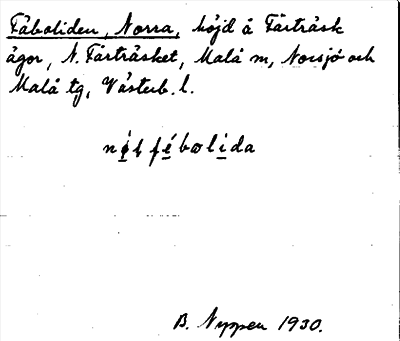 Fäboliden, Norra, höjd å Färträsk
ägor, N. Färträsket, Malå sn, Norsjö och
Malå tg, Västerb. l.
B. Nyppen 1930.